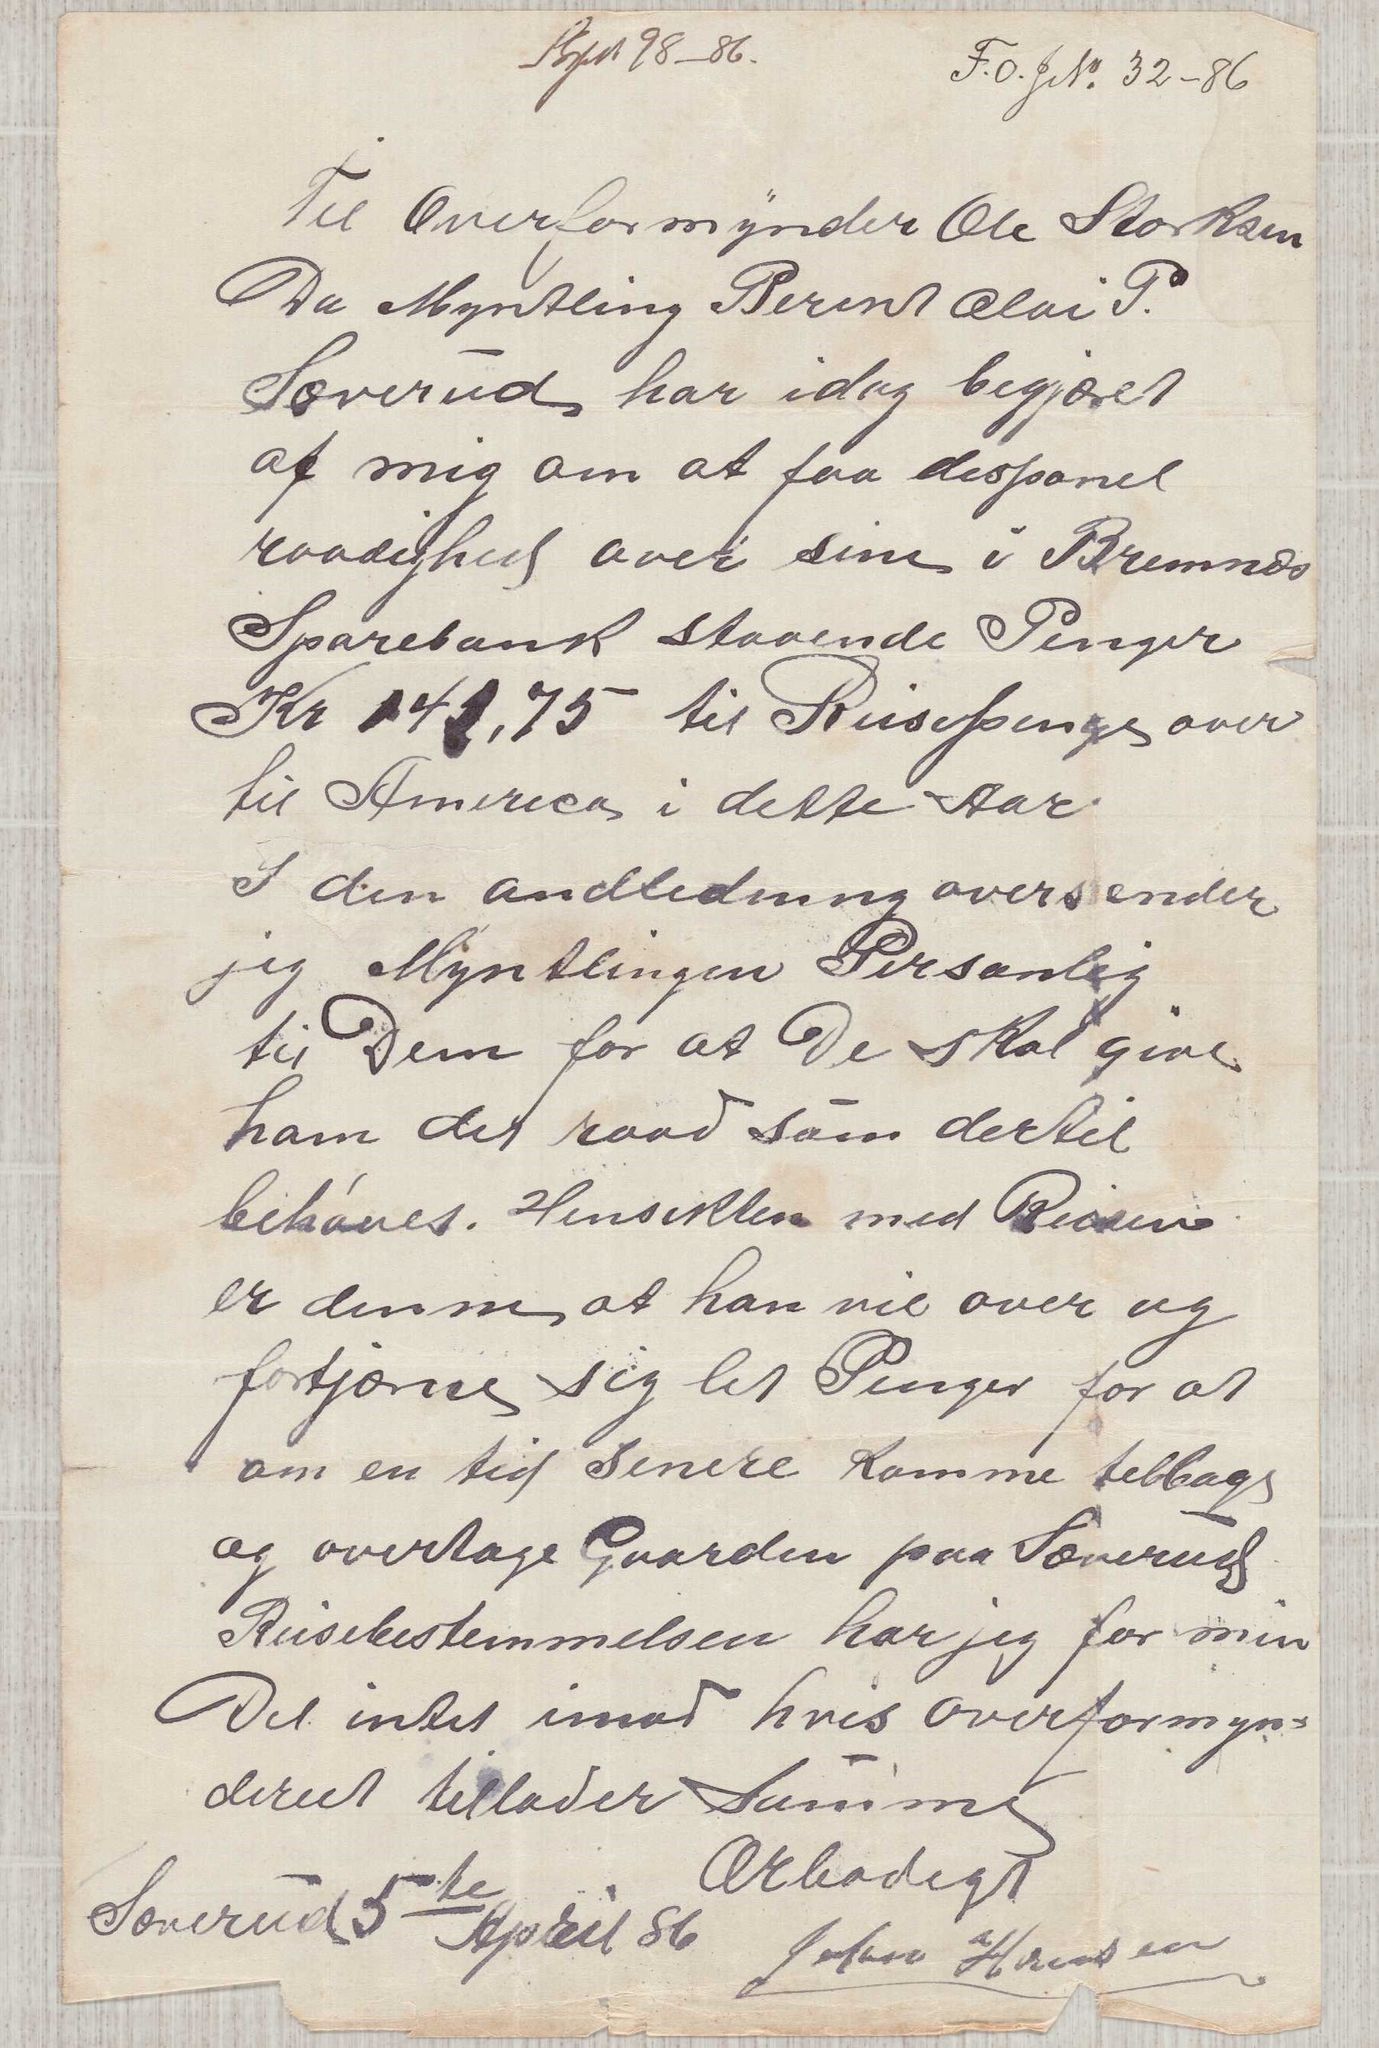 98-86.
F.O.JNo. 32-86
Til Overformÿnder Ole Storksen
Da Myntling Berent Olai P.
Sæverud har idag begjæret
af mig om at faa desponel
raadighed over sine i Bremnæs
Sparebank staaende Penger
Kr 141,75 til Reisepenge over
til America i dette Aar
I den andledning oversender
jeg Myntlingen Personlig
til Dem for at De skal give
ham det raad som dertil
behóves. Hensikten med Reisen
er denne at han vil over og
fortjæne sig let Penger for at
om en tid senere komme telbage
og overtage Gaarden paa Sæverud
Reisebestemmelsen har jeg for min
Del intet imod hvis overformyn=
deret tillader Samme
Ærbødigt
Sæverud 5te April 86
Johan Hansen